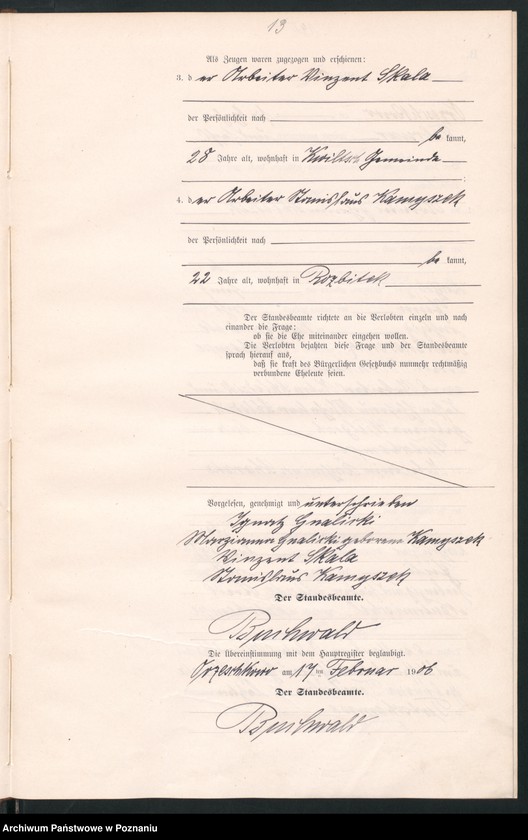 13
Als Zeugen waren zugezogen und erschienen:
3. der Arbeiter Vinzent Skala
der Persönlichkeit nach
be kannt,
28 Jahre alt, wohnhaft in Kwiltsch Gemeinde
4. der Arbeiter Stanislaus Kamyszek
der Persönlichkeit nach
be kannt,
22 Jahre alt, wohnhaft in Rozbitek
Der Standesbeamte richtete an die Verlobten einzeln und nach
einander die Frage:
ob sie die Ehe miteinander eingehen wollen.
Die Verlobten bejahten diese Frage und der Standesbeamte
sprach hierauf aus,
daß sie kraft des Bürgerlichen Gesetzbuchs nunmehr rechtmäßig
verbundene Eheleute seien.
Vorgelesen, genehmigt und unterschrieben
Ignatz Gnalicki
Marzianna Gnalicki geborene Kamyszek
Vinzent Skala
Stanislaus Kamyszek
Der Standesbeamte.
Buchwald
Die Übereinstimmung mit dem Hauptregister beglaubigt.
am 17 ten Februar 1906
Der Standesbeamte.
Buchwald
Archiwum Państwowe w Poznaniu